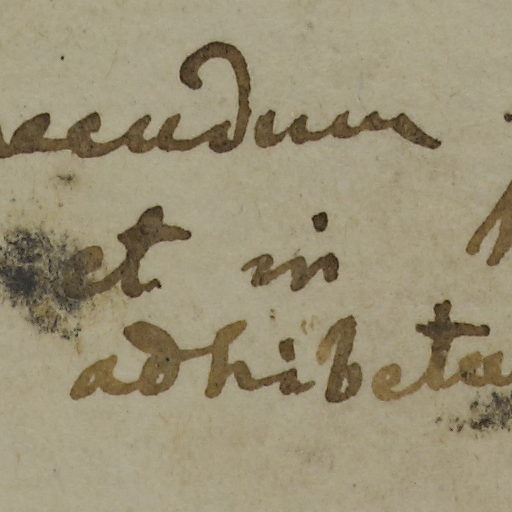 secundum
et in
adhibetu